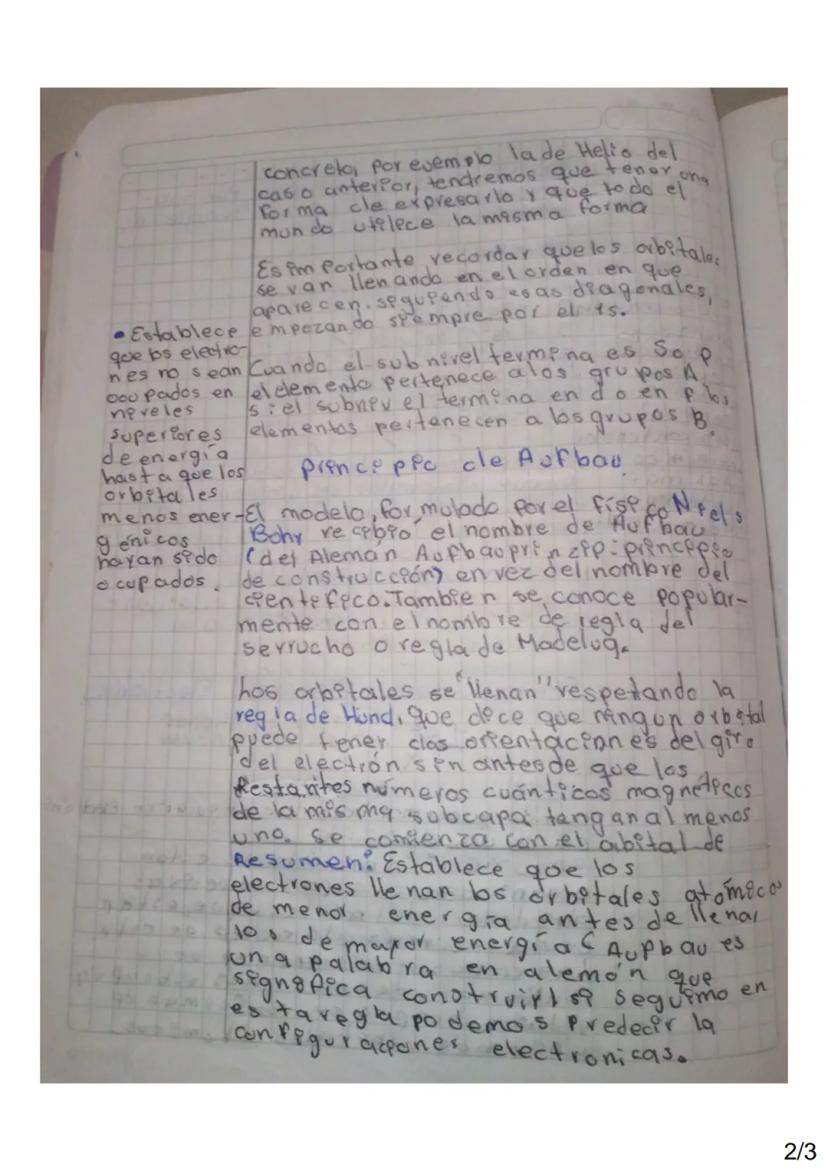 concreta, por evemplo la de Helio del
caso anterior, tendremos que tener una
forma de expresarlo y que todo el
mundo utilece la misma forma
Es importante recordar que los orbitales
se van llenando en el orden en que
aparecen, seguiendo esas diagonales,
empezando siempre por el 1s.
Cuando el subnivel termina es S o p
el elemento pertenece a los grupos A,
si el subnivel termina en d o en f los
elementos pertenecen a los grupos B.
• Establece
que los electro-
nes no sean
ocupados en
niveles
superiores
de energía
hasta que los
orbitales
menos ener-
génicos
hayan sido
ocupados.
Principio de Aufbau
El modelo, formulado por el físico Niels
Bohr recibió el nombre de Aufbau
(del Alemán Aufbauprinzip: principio
de construcción) en vez del nombre del
cientefico. Tambien se conoce popular-
mente con el nombre de regla del
serrucho o regla de Madelug.
Los orbitales se "llenan" respetando la
regla de Hund, que dice que ningun orbital
puede tener dos orientaciones del giro
del electrón sin antes de que los
Restantes números cuánticos magnéticos
de la misma subcapa tengan al menos
uno. Se comienza con el orbital de
Resumen: Establece que los
electrones llenan los orbitales atómicos
de menor energía antes de llenar
los de mayor energía (Aupbau es
una palabra en alemón que
significa construir) si seguimo en
esta regla podemos predecir la
configuraciones electronicas.
2/3